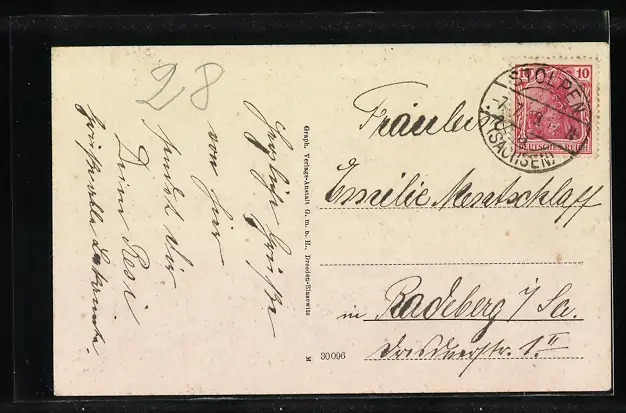 28
Herzliche Grüße
von hier
sendet dir
Deine Resi
Graph. Verlags-Anstalt G. m. b. H., Dresden-Blasewitz
M 30096
10 10
DEUTSCHES REICH
STOLPEN
(SACHSEN)
Fräulein
Emilie
in Radeberg i/Sa.
Dresdnerstr. 1.II